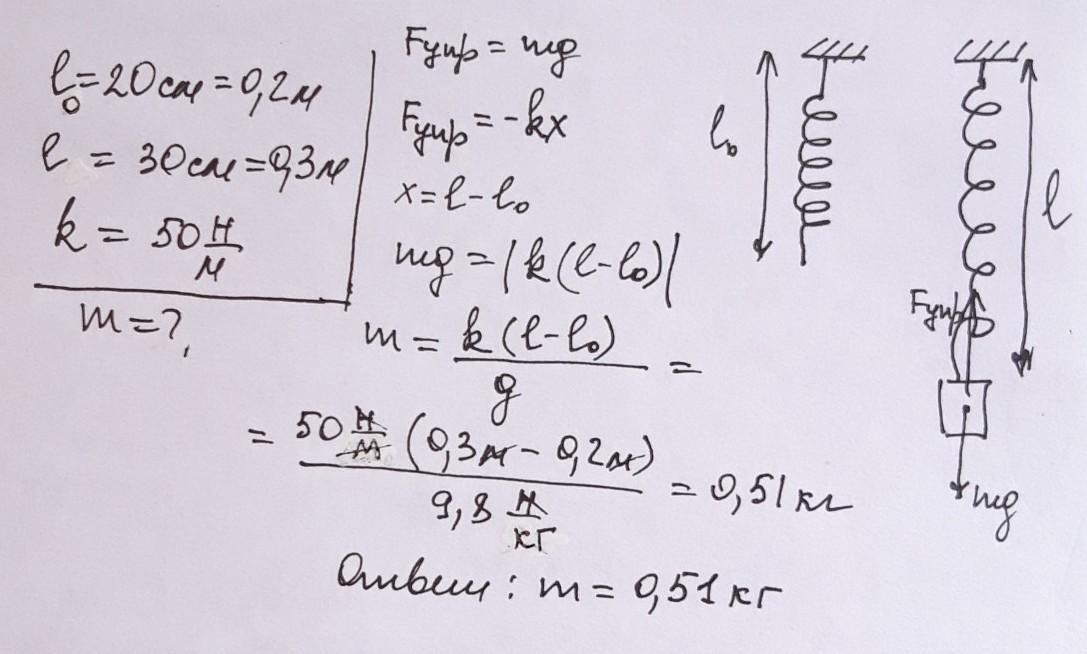 l₀=20см=0,2м
l = 30см=0,3м
k = 50 Н/м
m=?,
Fупр = mg
Fупр = -kx
x=l-l₀
mg = |k(l-l₀)|
m = k(l-l₀)/g =
= 50 Н/м (0,3м - 0,2м) / 9,8 Н/кг = 0,51 кг
Ответ: m = 0,51 кг
l₀
l
Fупр
mg